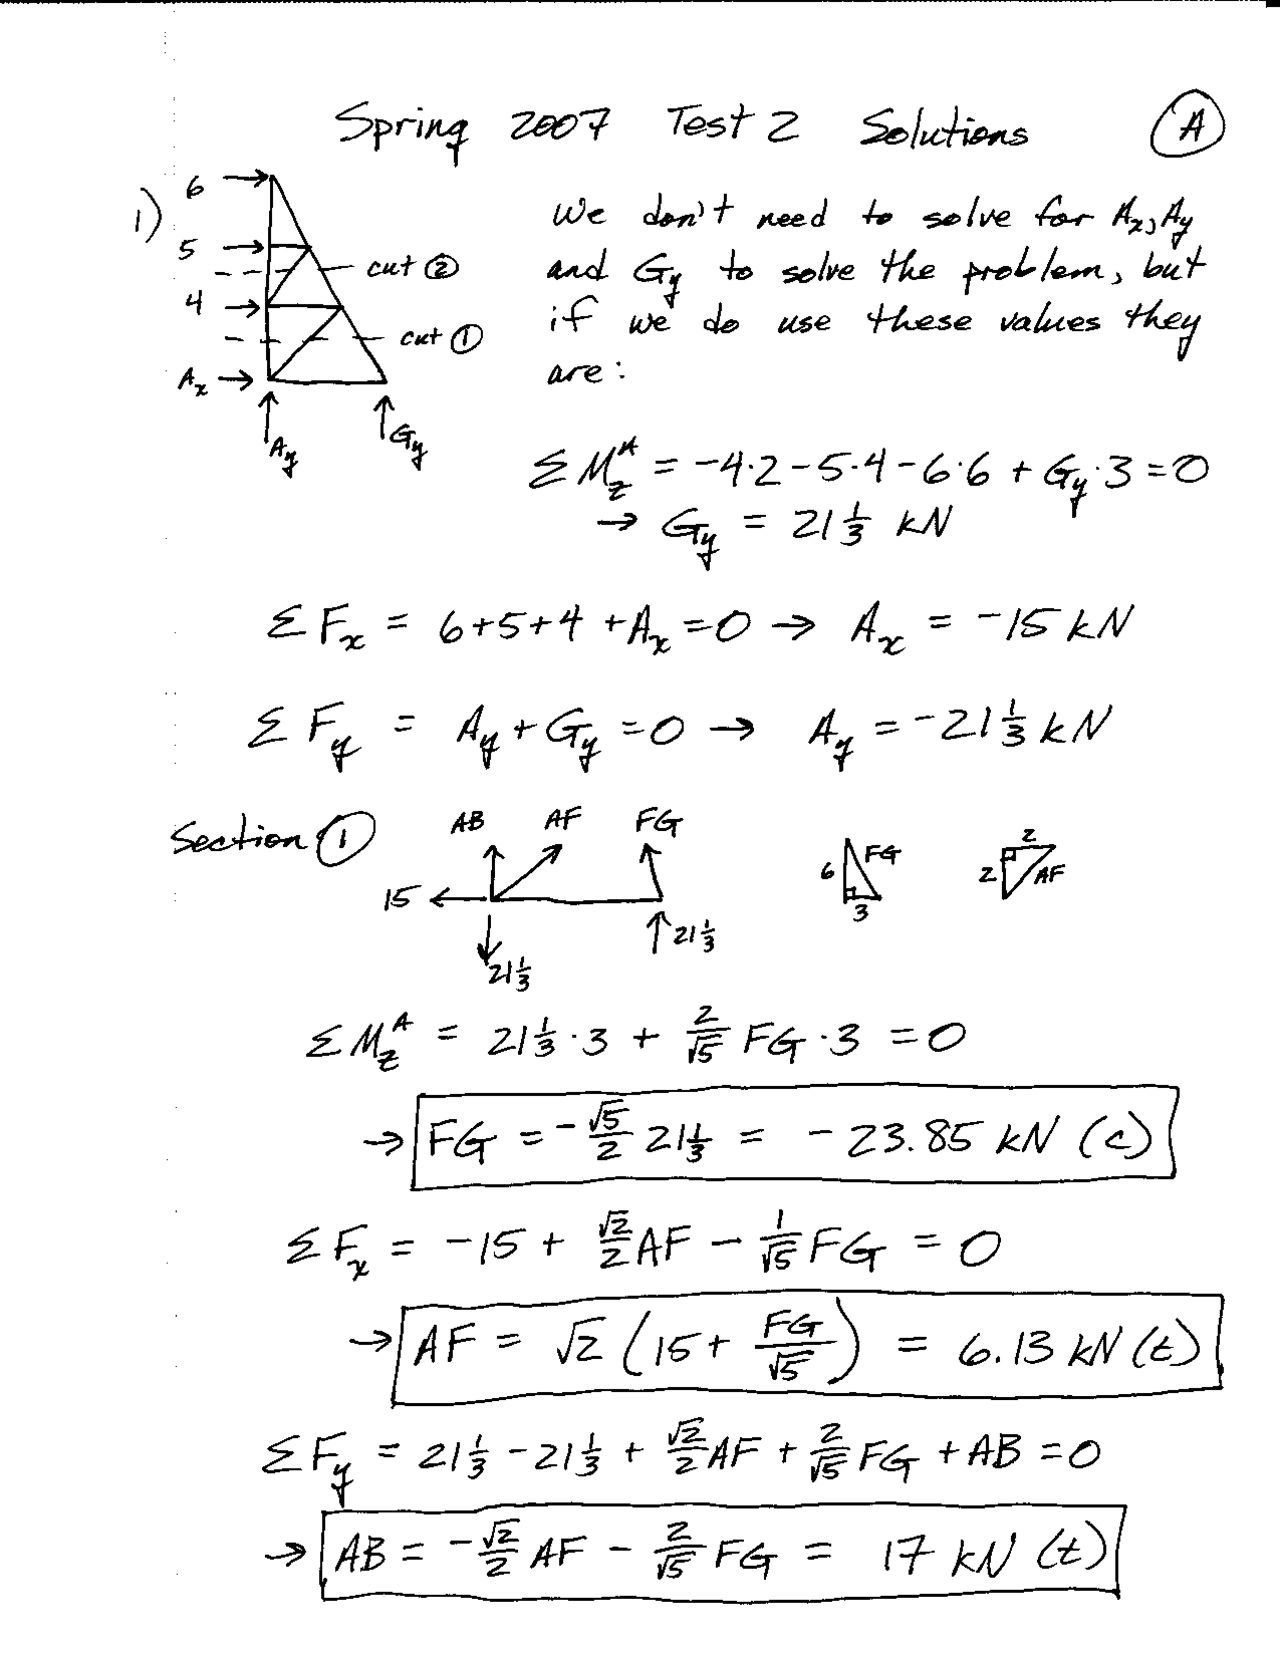 Spring 2007 Test 2 Solutions Ⓐ
1)
6 →
5 →
cut ②
4 →
cut ①
Ax →
Ay
Gy
We don't need to solve for Ax, Ay
and Gy to solve the problem, but
if we do use these values they
are:
ΣMzᴬ = -4·2 - 5·4 - 6·6 + Gy·3 = 0
→ Gy = 21 1/3 kN
ΣFx = 6+5+4+Ax = 0 → Ax = -15 kN
ΣFy = Ay + Gy = 0 → Ay = -21 1/3 kN
Section ①
AB AF FG
15 ←
21 1/3
21 1/3
6 FG
3
2
2 AF
ΣMzᴬ = 21 1/3 · 3 + 2/√5 FG · 3 = 0
→ FG = -√5/2 21 1/3 = -23.85 kN (c)
ΣFx = -15 + √2/2 AF - 1/√5 FG = 0
→ AF = √2 (15 + FG/√5) = 6.13 kN (t)
ΣFy = 21 1/3 - 21 1/3 + √2/2 AF + 2/√5 FG + AB = 0
→ AB = -√2/2 AF - 2/√5 FG = 17 kN (t)